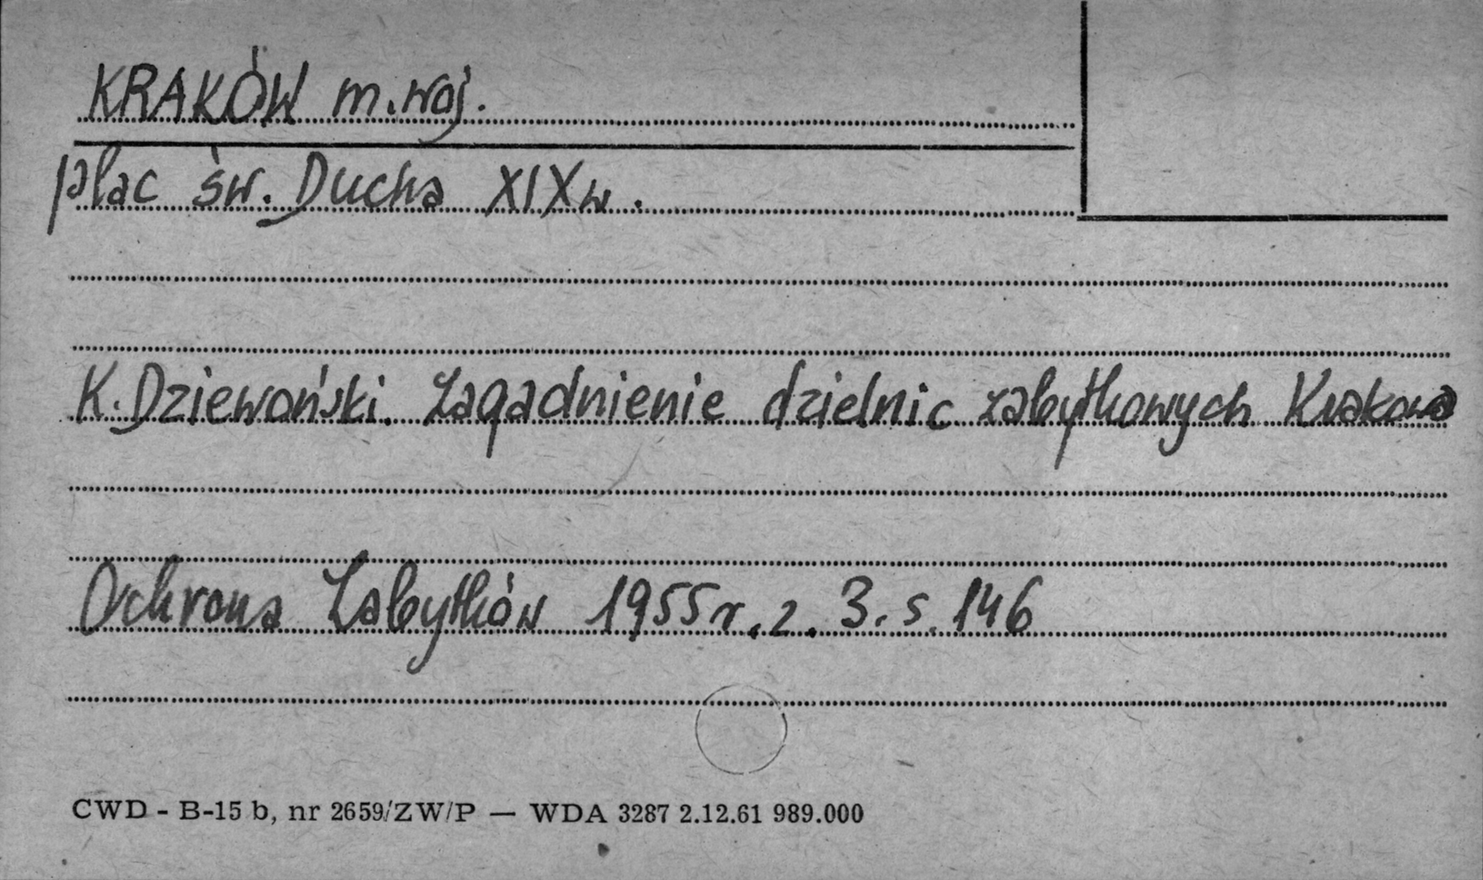 KRAKÓW m.woj.
plac św. Ducha XIXw.
K. Dziewoński. Zagadnienie dzielnic zabytkowych Krakowa
Ochrona Zabytków 1955r. z. 3. s. 146
CWD - B-15 b, nr 2659/ZW/P — WDA 3287 2.12.61 989.000